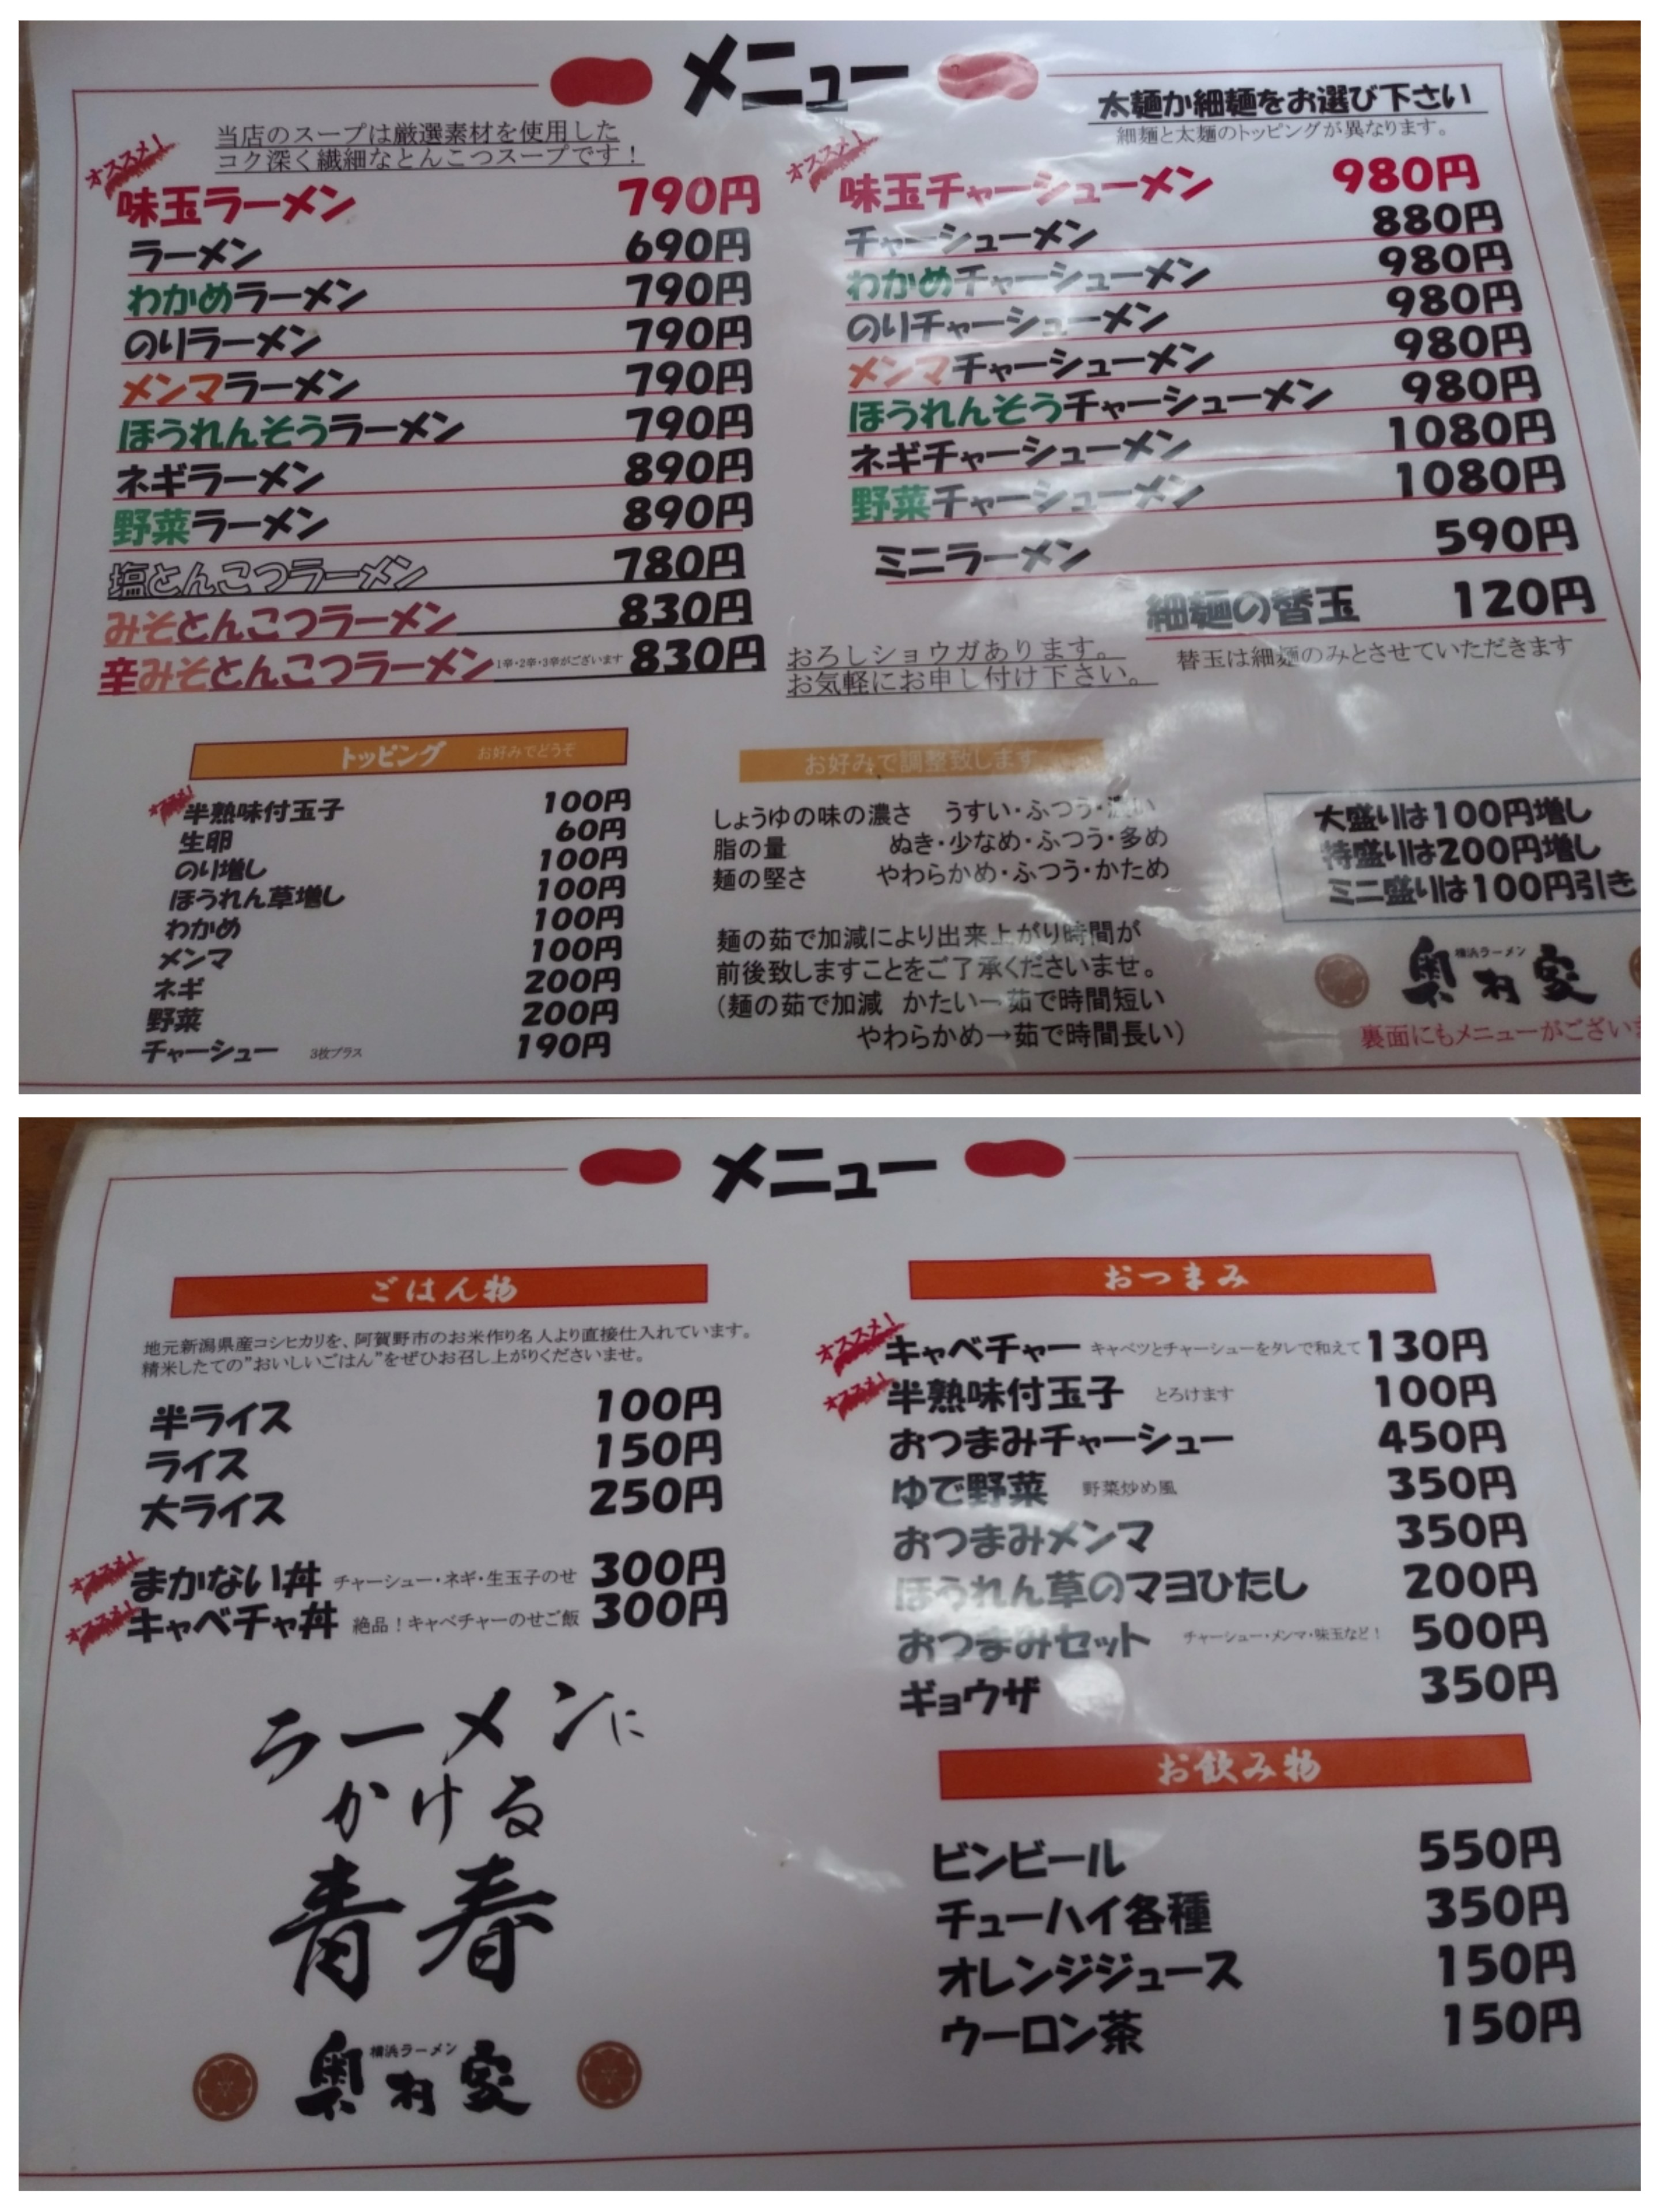 メニュー
太麺か細麺をお選び下さい
細麺と太麺のトッピングが異なります。
当店のスープは厳選素材を使用した
コク深く繊細なとんこつスープです！
オススメ！
味玉ラーメン 790円
ラーメン 690円
わかめラーメン 790円
のりラーメン 790円
メンマラーメン 790円
ほうれんそうラーメン 790円
ネギラーメン 890円
野菜ラーメン 890円
塩とんこつラーメン 780円
みそとんこつラーメン 830円
辛みそとんこつラーメン 1辛・2辛・3辛がございます 830円
オススメ！
味玉チャーシューメン 980円
チャーシューメン 880円
わかめチャーシューメン 980円
のりチャーシューメン 980円
メンマチャーシューメン 980円
ほうれんそうチャーシューメン 980円
ネギチャーシューメン 1080円
野菜チャーシューメン 1080円
ミニラーメン 590円
細麺の替玉 120円
替玉は細麺のみとさせていただきます
おろしショウガあります。
お気軽にお申し付け下さい。
トッピング お好みでどうぞ
オススメ！
半熟味付玉子 100円
生卵 60円
のり増し 100円
ほうれん草増し 100円
わかめ 100円
メンマ 100円
ネギ 200円
野菜 200円
チャーシュー 3枚プラス 190円
お好みで調整致します
しょうゆの味の濃さ うすい・ふつう・濃い
脂の量 ぬき・少なめ・ふつう・多め
麺の堅さ やわらかめ・ふつう・かため
麺の茹で加減により出来上がり時間が
前後致しますことをご了承くださいませ。
（麺の茹で加減 かたい→茹で時間短い
やわらかめ→茹で時間長い）
大盛りは100円増し
特盛りは200円増し
ミニ盛りは100円引き
横浜ラーメン
奥村家
裏面にもメニューがござい
メニュー
ごはん物
地元新潟県産コシヒカリを、阿賀野市のお米作り名人より直接仕入れています。
精米したての”おいしいごはん”をぜひお召し上がりくださいませ。
半ライス 100円
ライス 150円
大ライス 250円
オススメ！
まかない丼 チャーシュー・ネギ・生玉子のせ 300円
オススメ！
キャベチャ丼 絶品！キャベチャーのせご飯 300円
ラーメンに
かける
青春
横浜ラーメン
奥村家
おつまみ
オススメ！
キャベチャー キャベツとチャーシューをタレで和えて 130円
オススメ！
半熟味付玉子 とろけます 100円
おつまみチャーシュー 450円
ゆで野菜 野菜炒め風 350円
おつまみメンマ 350円
ほうれん草のマヨひたし 200円
おつまみセット チャーシュー・メンマ・味玉など！ 500円
ギョウザ 350円
お飲み物
ビンビール 550円
チューハイ各種 350円
オレンジジュース 150円
ウーロン茶 150円